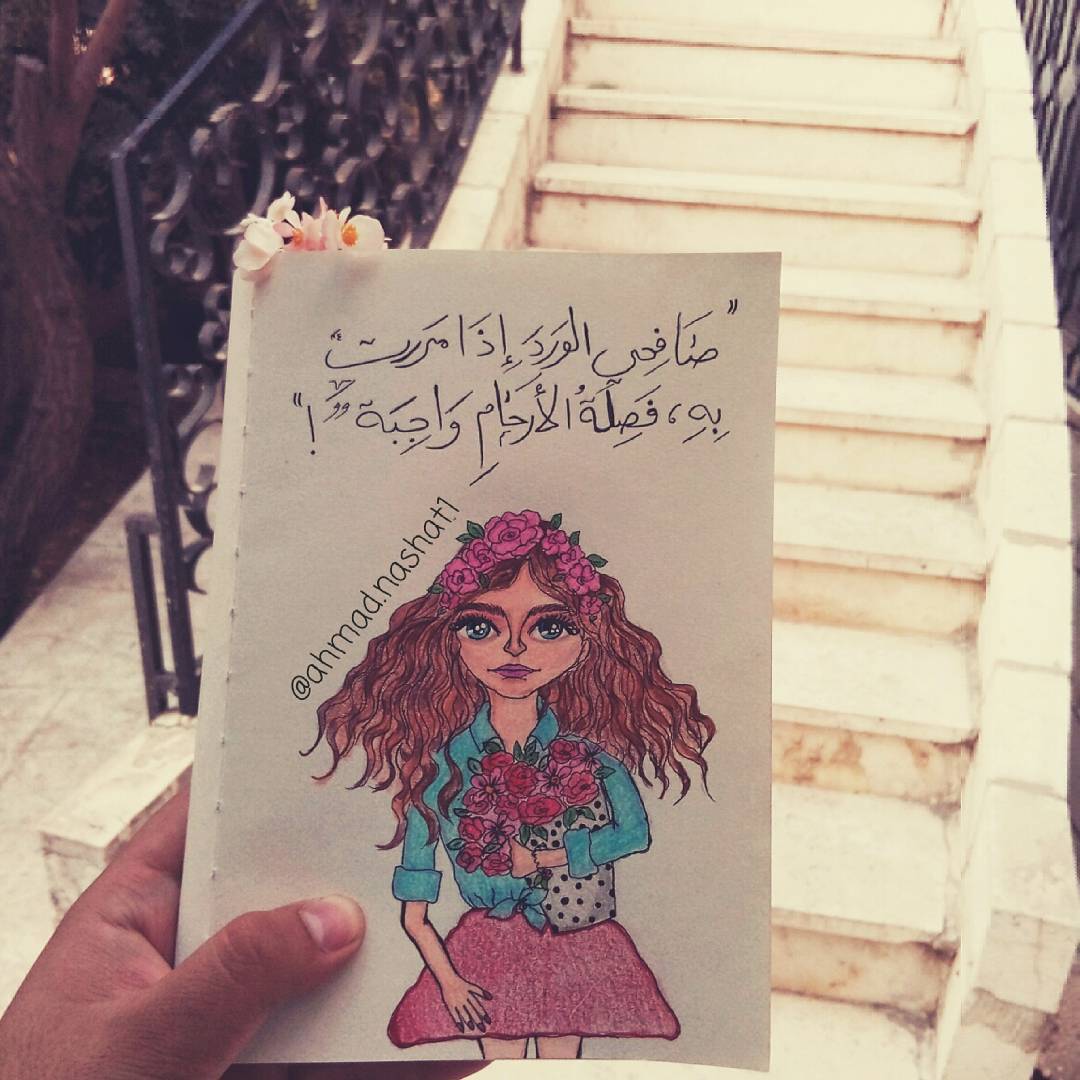 "صَافِحي الوَردَ إِذَا مَررتِ
بِهِ، فَصِلَةُ الأَرحَامِ وَاجِبَة !"
@ahmad.nashat1